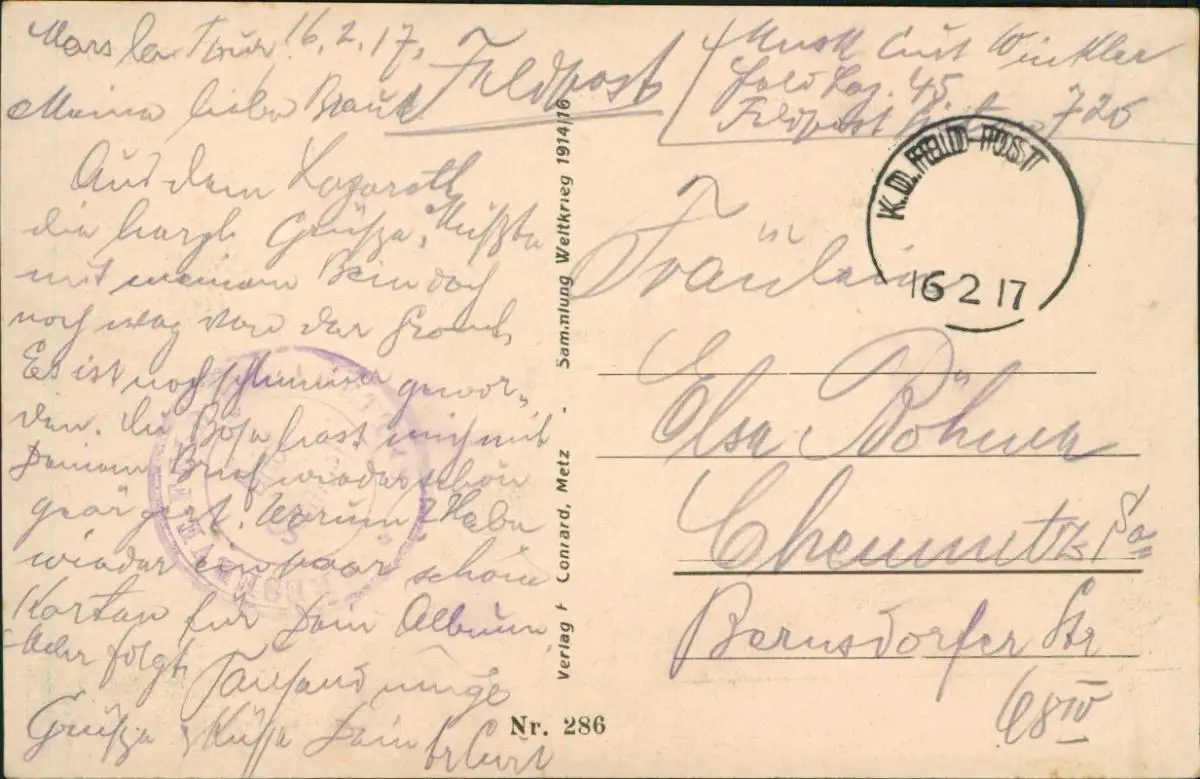 Mars la Tour, 16.2.17.
Meine liebe Braut.
Aus dem Lazareth
die herzl. Grüße, Mußte
mit meinem Bein doch
noch weg von der Front.
Es ist noch schlimmer gewor-
den. Du Böse hast mich mit
Deinem Brief wieder schön
geärgert. Warum? Habe
wieder ein paar schöne
Karten für Dein Album
Mehr folgt. Tausend innige
Grüße & Küsse Dein
Curt
Feldpost
Musk Curt Winkler
Feld Laz. 45.
Feldpost 726
16 2 17
Fräulein
Elsa Böhme
Chemnitz i/Sa
Bernsdorfer Str
68 IV
Verlag Conrad, Metz - Sammlung Weltkrieg 1914/16
Nr. 286